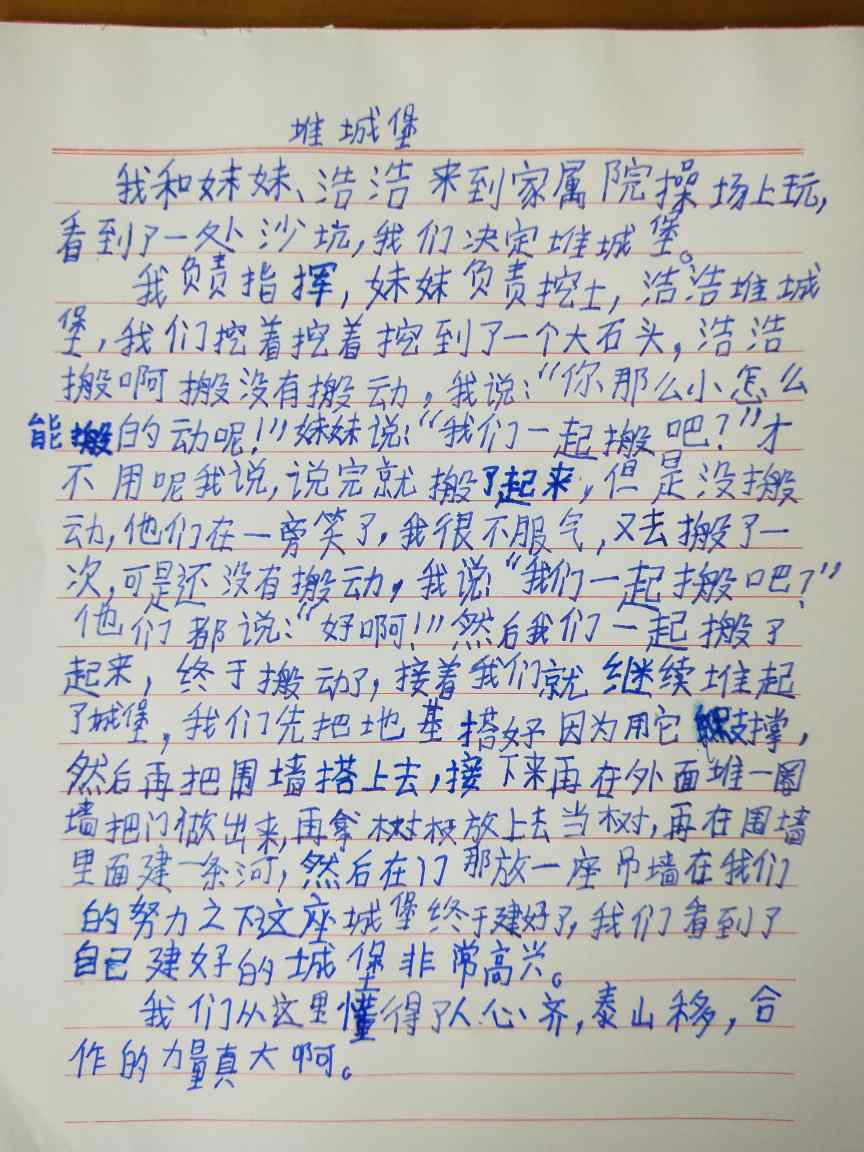 堆城堡
我和妹妹、浩浩来到家属院操场上玩,
看到了一处沙坑,我们决定堆城堡。
我负责指挥,妹妹负责挖土,浩浩堆城
堡,我们挖着挖着挖到了一个大石头,浩浩
搬啊搬没有搬动,我说:“你那么小怎么
能搬的动呢!”妹妹说:“我们一起搬吧?”才
不用呢我说,说完就搬了起来,但是没搬
动,他们在一旁笑了,我很不服气,又去搬了一
次,可是还没有搬动,我说:“我们一起搬吧?”
他们都说:“好啊!”然后我们一起搬了
起来,终于搬动了,接着我们就继续堆起
了城堡,我们先把地基搭好因为用它支撑,
然后再把围墙搭上去,接下来再在外面堆一圈
墙把门做出来,再拿树枝放上去当树,再在围墙
里面建一条河,然后在门那放一座吊墙在我们
的努力之下这座城堡终于建好了,我们看到了
自己建好的城堡非常高兴。
我们从这里懂得了人心齐,泰山移,合
作的力量真大啊。